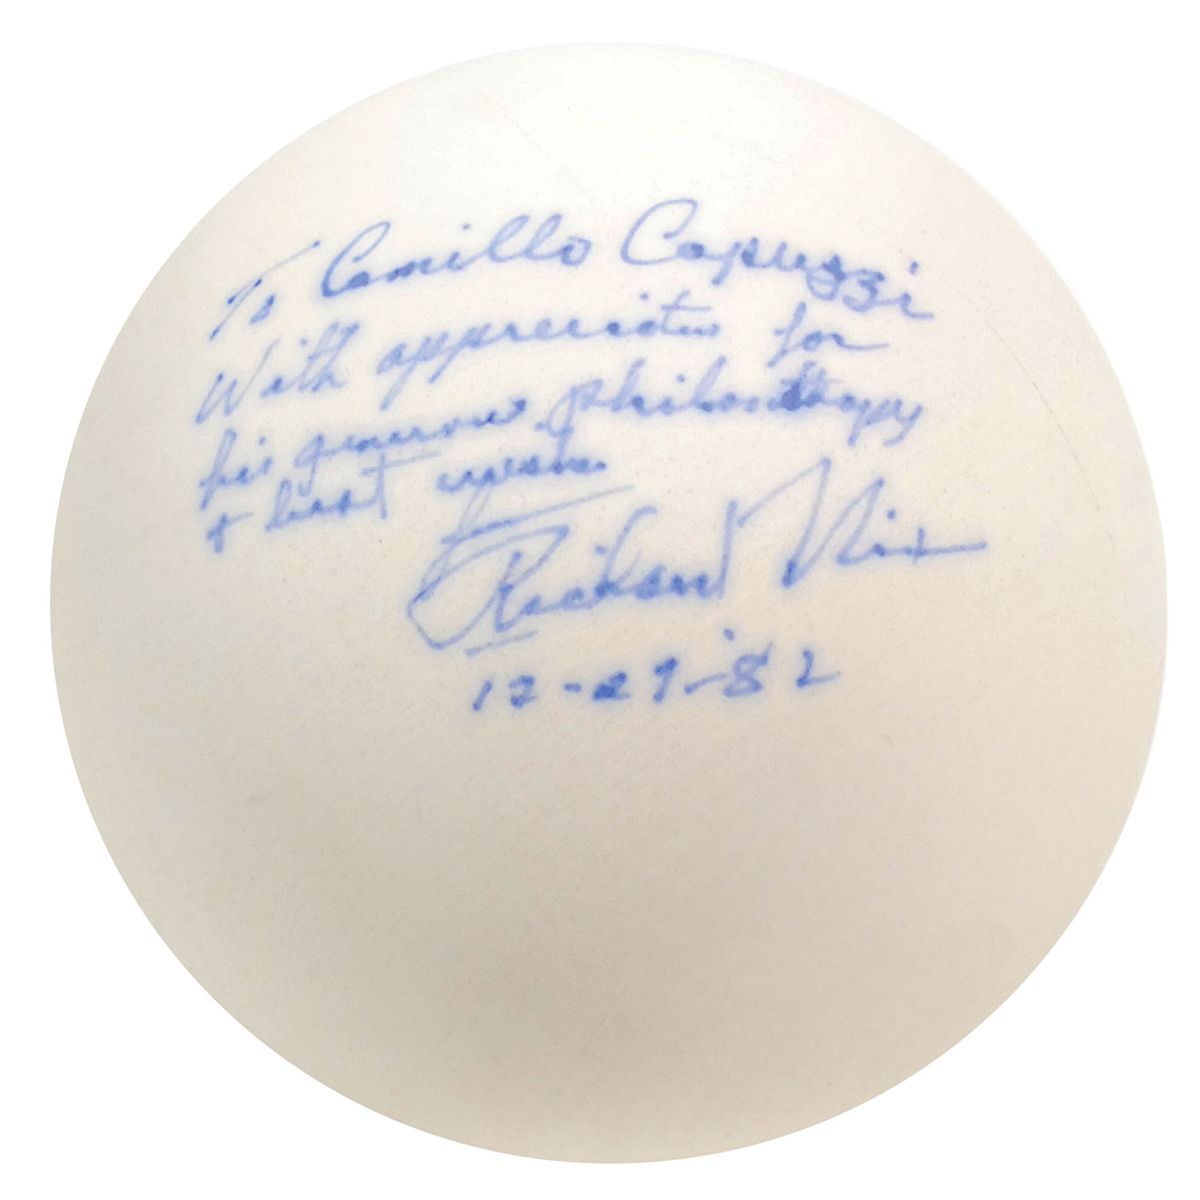 To Camillo Capuzzi
With appreciation for
his generous philanthropy
+ best wishes
Richard Nix
12-29-82